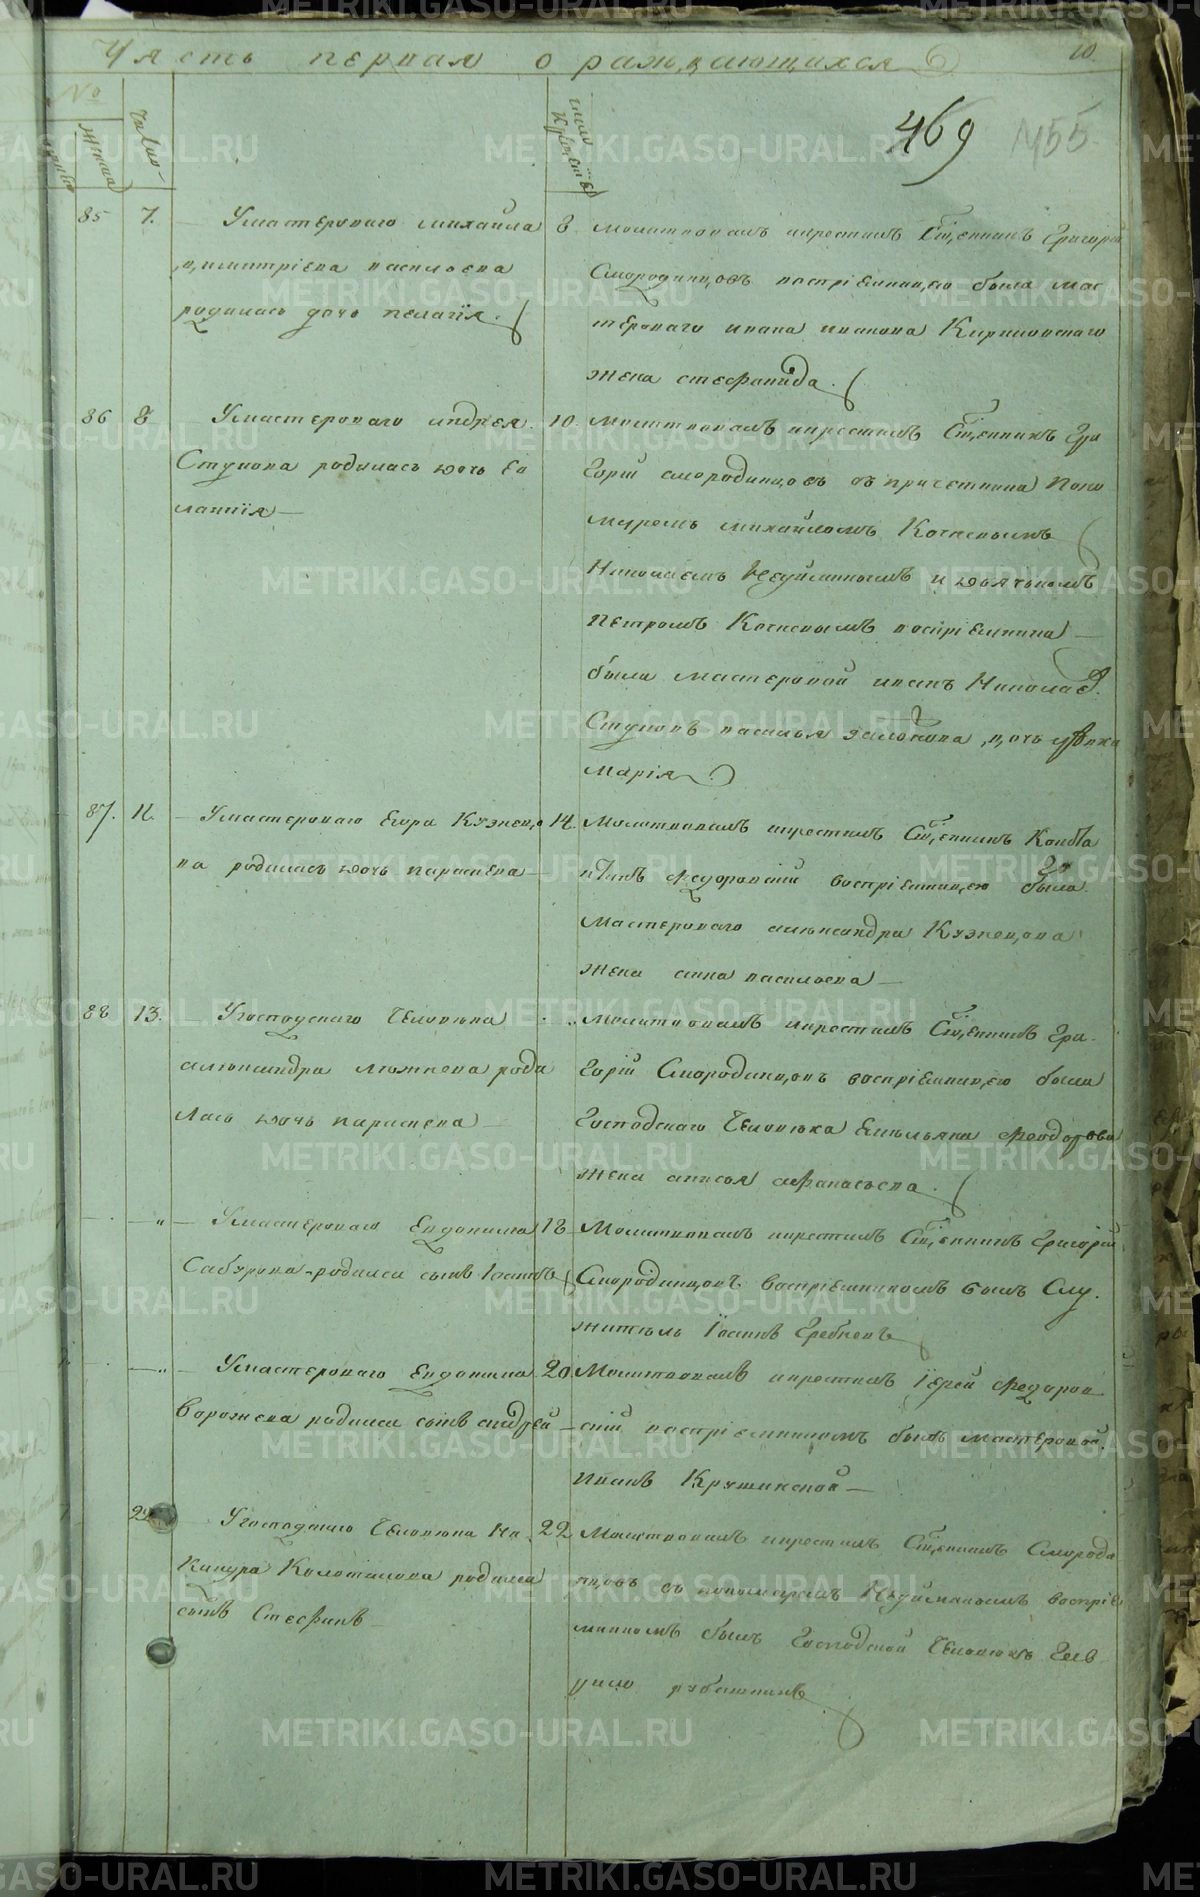 Часть первая о раждающихся
10.
469
455.
№
женска
число
число крещенїя
85 7. Умастероваго михаила
димитрїева василоева
родилась дочь пелагїя.
8. молитвовалъ икрестилъ Сщ҃енникъ Григорїй
Смородинцовъ воспрїемницею была мас
тероваго ивана иванова Кириловскаго
жена стефанида.
86 8 Умастероваго андрея
Ступова родилась дочь Ев
лампїя
10. молитвовалъ икрестилъ Сщ҃енникъ Гри
горїй смородинцовъ съ причетники Поно
маремъ михайломъ Кочневымъ
Николаемъ Неуйминымъ и дьячькомъ
петромъ Кочневымъ воспрїемники
были мастеровой иванъ Николаев
Ступовъ василья дочь девка
марїя
87. 12. Умастероваго Егора Кузнецо
ва родилась дочь параскева
14. Молитвовалъ икрестилъ Сщ҃енникъ Конста
нтинъ Федоровскїй воспрїемницею была
мастероваго александра Кузнецова
жена анна василоева
88 13. Угосподскаго Человека
александра родил
лась дочь параскева
„ молитвовалъ икрестилъ Сщ҃енникъ Гри
горїй Смородинцовъ воспрїемницею была
Господскаго Человека Емельяна Феодорова
жена анисоя афанасьева.
„ Умастероваго Евдокима
Сабурова родился сынъ Іоаннъ
18 Молитвовалъ икрестилъ Сщ҃енникъ Григорїй
Смородинцовъ воспрїемникомъ былъ Слу
житель Їоаннъ Гребневъ
„ Умастероваго Евдокима
Ворожева родился сынъ андрей
20 Молитвовалъ икрестилъ їерей Федоров
скїй воспрїемникомъ былъ мастеровой
иванъ
22 Угосподскаго Человека Ни
Кифора Колотилова родился
сынъ Стефанъ
22 Молитвовалъ икрестилъ Сщ҃енникъ Смороди
нцовъ съ пономаремъ Неуйминымъ воспрїе
мникомъ былъ Господской Человекъ